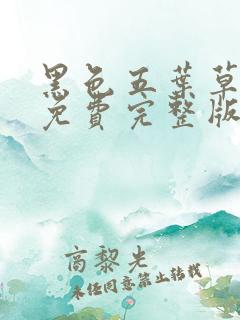 黑色五葉草
免費完整版
高黎光
未经同意禁止转载